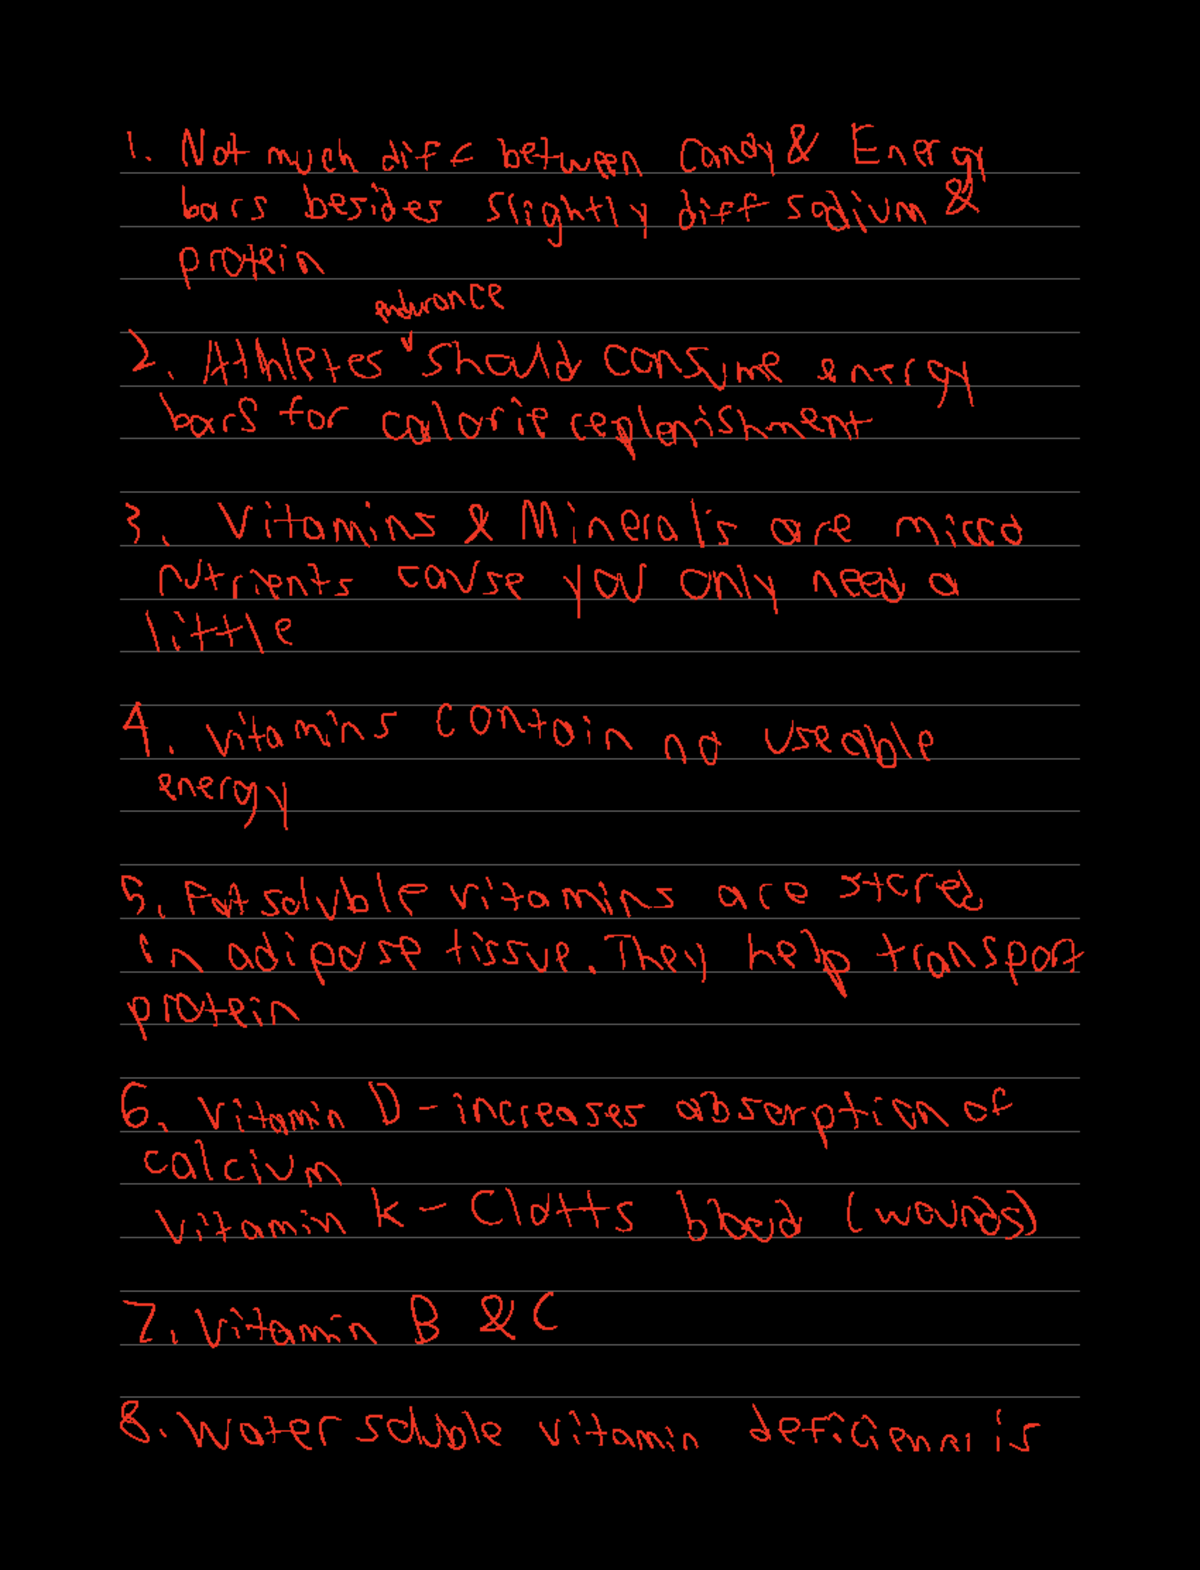 1. Not much diff between Candy & Energy
bars besides slightly diff sodium &
protein
endurance
2. Athletes should consume energy
bars for calorie replenishment
3. Vitamins & Minerals are micro
nutrients cause you only need a
little
4. Vitamins contain no useable
energy
5. Fat soluble vitamins are stored
in adipose tissue. They help transport
protein
6. Vitamin D - increases absorption of
calcium
Vitamin K - Clotts blood (wounds)
7. Vitamin B & C
8. Water soluble vitamin is